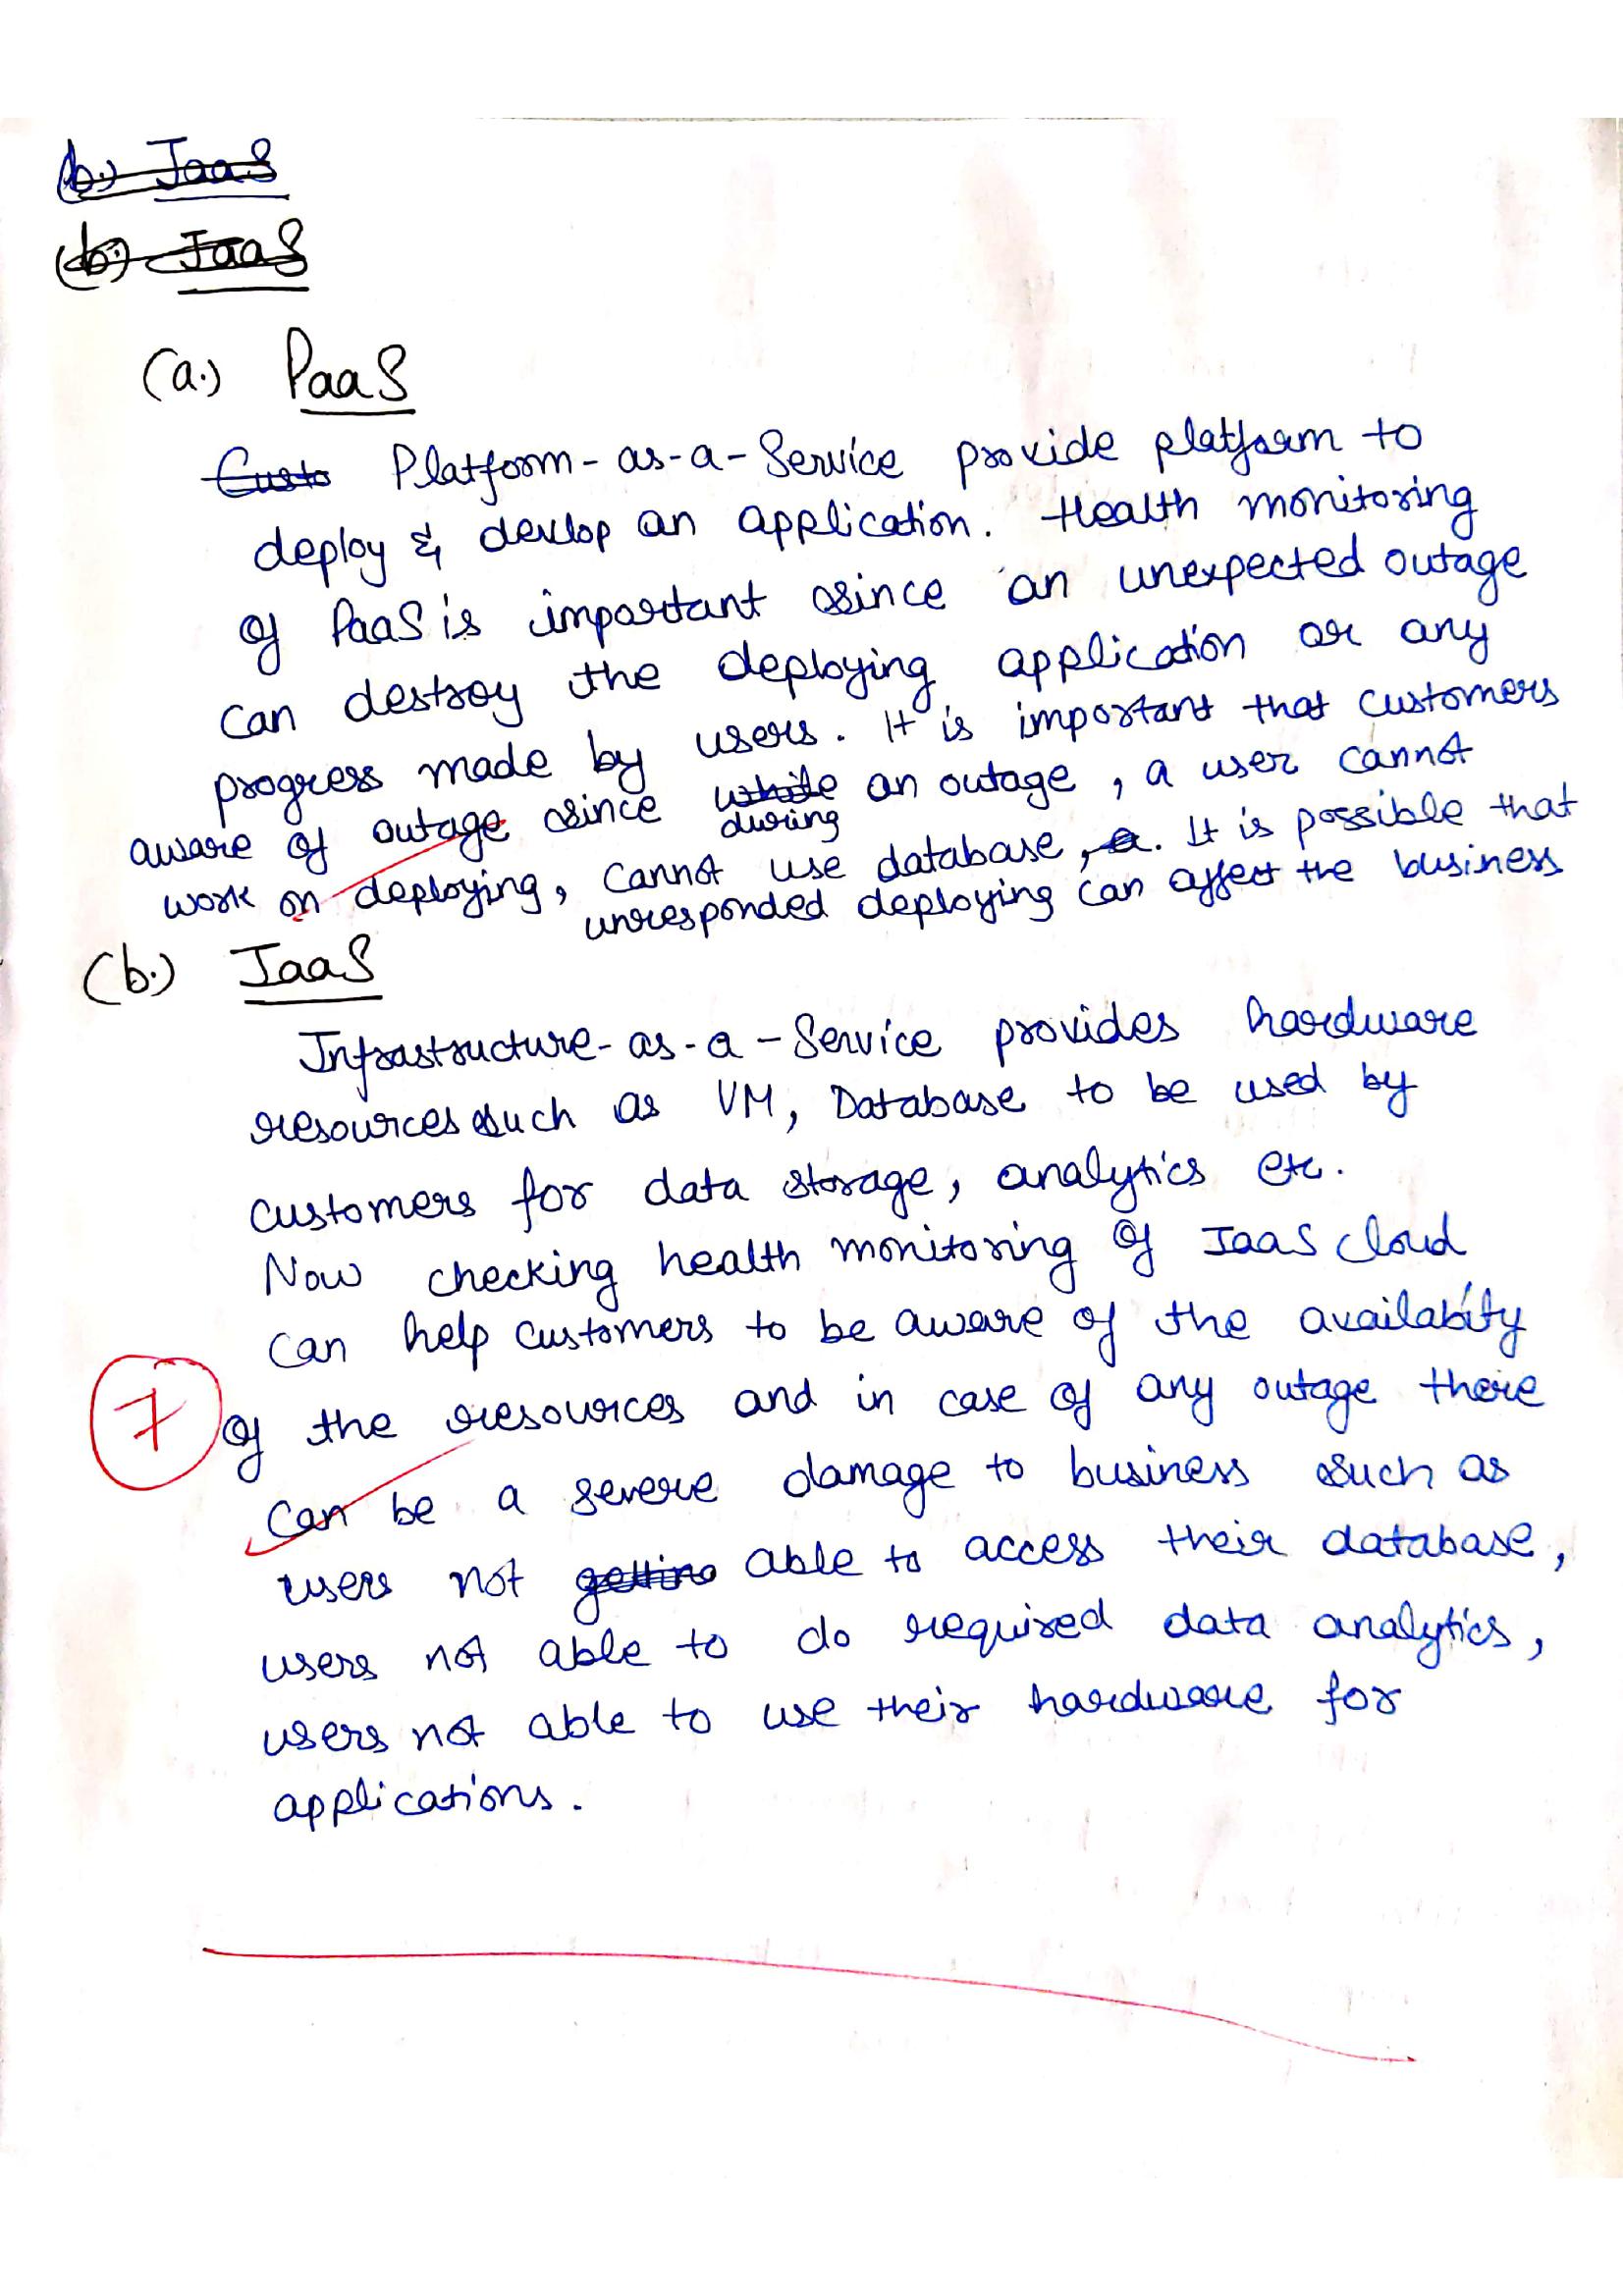 (b.) IaaS
(b.) IaaS
(a.) PaaS
Custo Platform-as-a-Service provide platform to
deploy & devlop an application. Health monitoring
of PaaS is important since an unexpected outage
can destroy the deploying application or any
progress made by users. It is important that customers
aware of outage since while during an outage, a user cannot
work on deploying, cannot use database, a. It is possible that
unresponded deploying can affect the business
(b.) IaaS
Infrastructure-as-a-Service provides hardware
resources such as VM, Database to be used by
customers for data storage, analytics etc.
Now checking health monitoring of IaaS cloud
can help customers to be aware of the availabity
7
of the resources and in case of any outage there
can be a severe damage to business such as
users not getting able to access their database,
users not able to do required data analytics,
users not able to use their hardware for
applications.